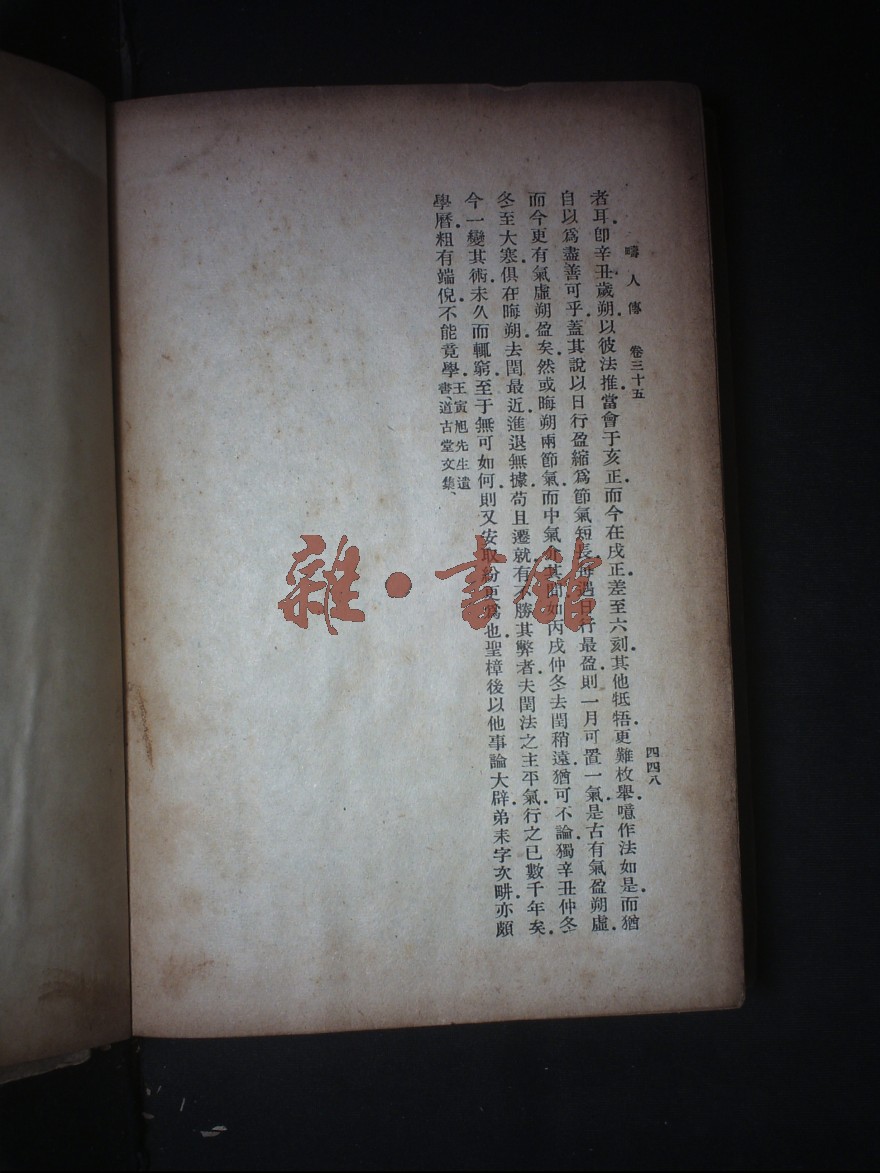 疇人傳　卷三十五　四四八
者耳．卽辛丑歲朔．以彼法推．當會于亥正．而今在戌正．差至六刻．其他牴牾．更難枚舉．噫．作法如是．而猶
自以爲盡善可乎．蓋其說以日行盈縮爲節氣短長．每遇日行最盈．則一月可置一氣．是古有氣盈朔虛．
而今更有氣虛朔盈矣．然或晦朔兩節氣．而中氣介其間．如丙戌仲冬．去閏稍遠．猶可不論．獨辛丑仲冬．
冬至大寒俱在晦朔．去閏最近．進退無據．苟且遷就．有不勝其弊者．夫閏法之主平氣．行之已數千年矣．
今一變其術．未久而輒窮．至于無可如何．則又安取紛更爲也．聖樟後以他事論大辟．弟耒字次畊．亦頗
學曆．粗有端倪．不能竟學．王寅旭先生遺書道古堂文集、
雜·書館